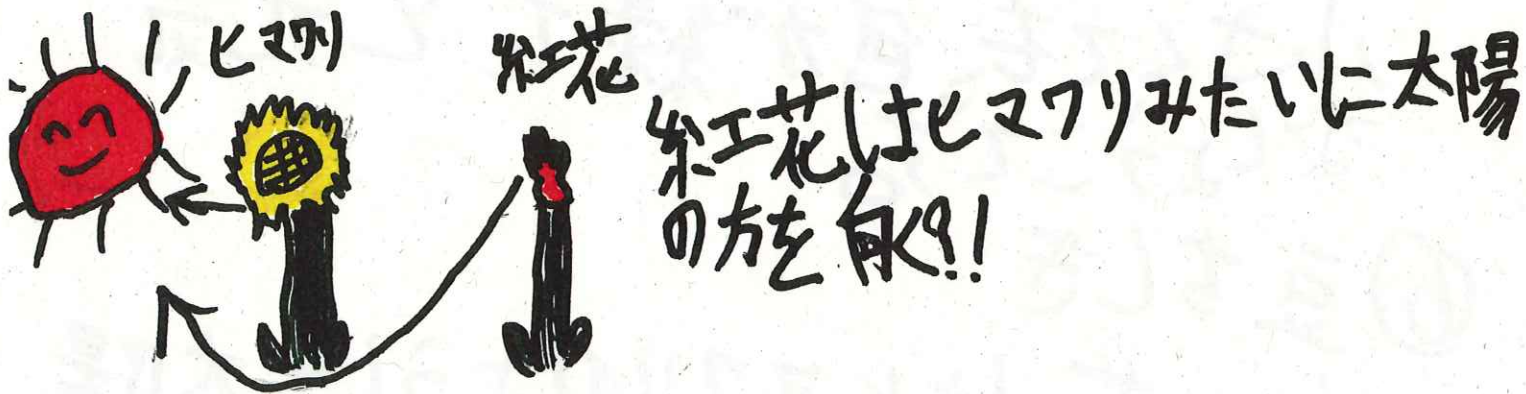 ヒマワリ
紅花
紅花はヒマワリみたいに太陽
の方を向く?!